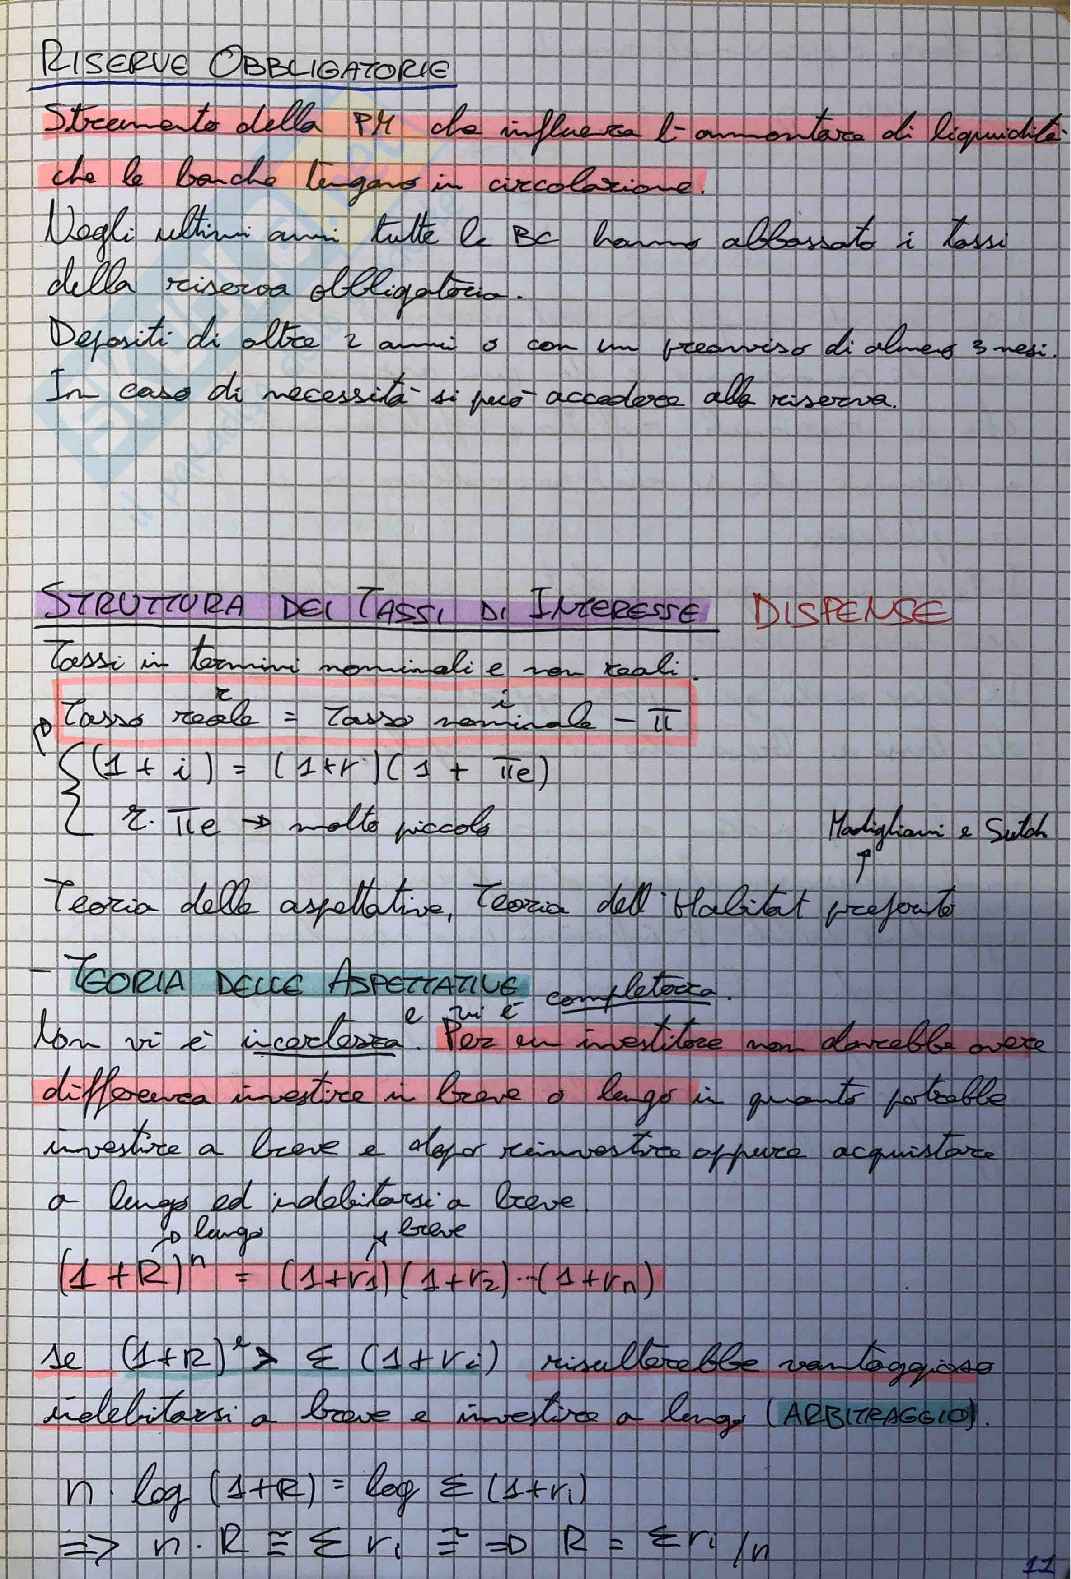 RISERVE OBBLIGATORIE
Strumento della PM che influenza l'ammontare di liquidità
che le banche tengono in circolazione.
Negli ultimi anni tutte le BC hanno abbassato i tassi
della riserva obbligatoria.
Depositi di oltre 2 anni o con un preavviso di almeno 3 mesi.
In caso di necessità si può accedere alla riserva.
STRUTTURA DEI TASSI DI INTERESSE DISPENSE
Tassi in termini nominali e non reali.
r i
Tasso reale = Tasso nominale - π
(1 + i) = (1+r)(1 + πe)
r · πe → molto piccolo
Modigliani e Sutch
↑
Teoria delle aspettative, Teoria dell'Habitat preferito
- TEORIA DELLE ASPETTATIVE
e vi è completezza.
Non vi è incertezza. Per un investitore non dovrebbe avere
differenza investire in breve o lungo in quanto potrebbe
investire a breve e dopo reinvestire oppure acquistare
a lungo ed indebitarsi a breve.
→ lungo → breve
(1+R)ⁿ = (1+r1)(1+r2)...(1+rn)
se (1+R)² > Σ (1+ri) risulterebbe vantaggioso
indebitarsi a breve e investire a lungo (ARBITRAGGIO).
n log (1+R) = log Σ (1+ri)
=> n · R ≅ Σ ri ≅ => R = Σri /n
11